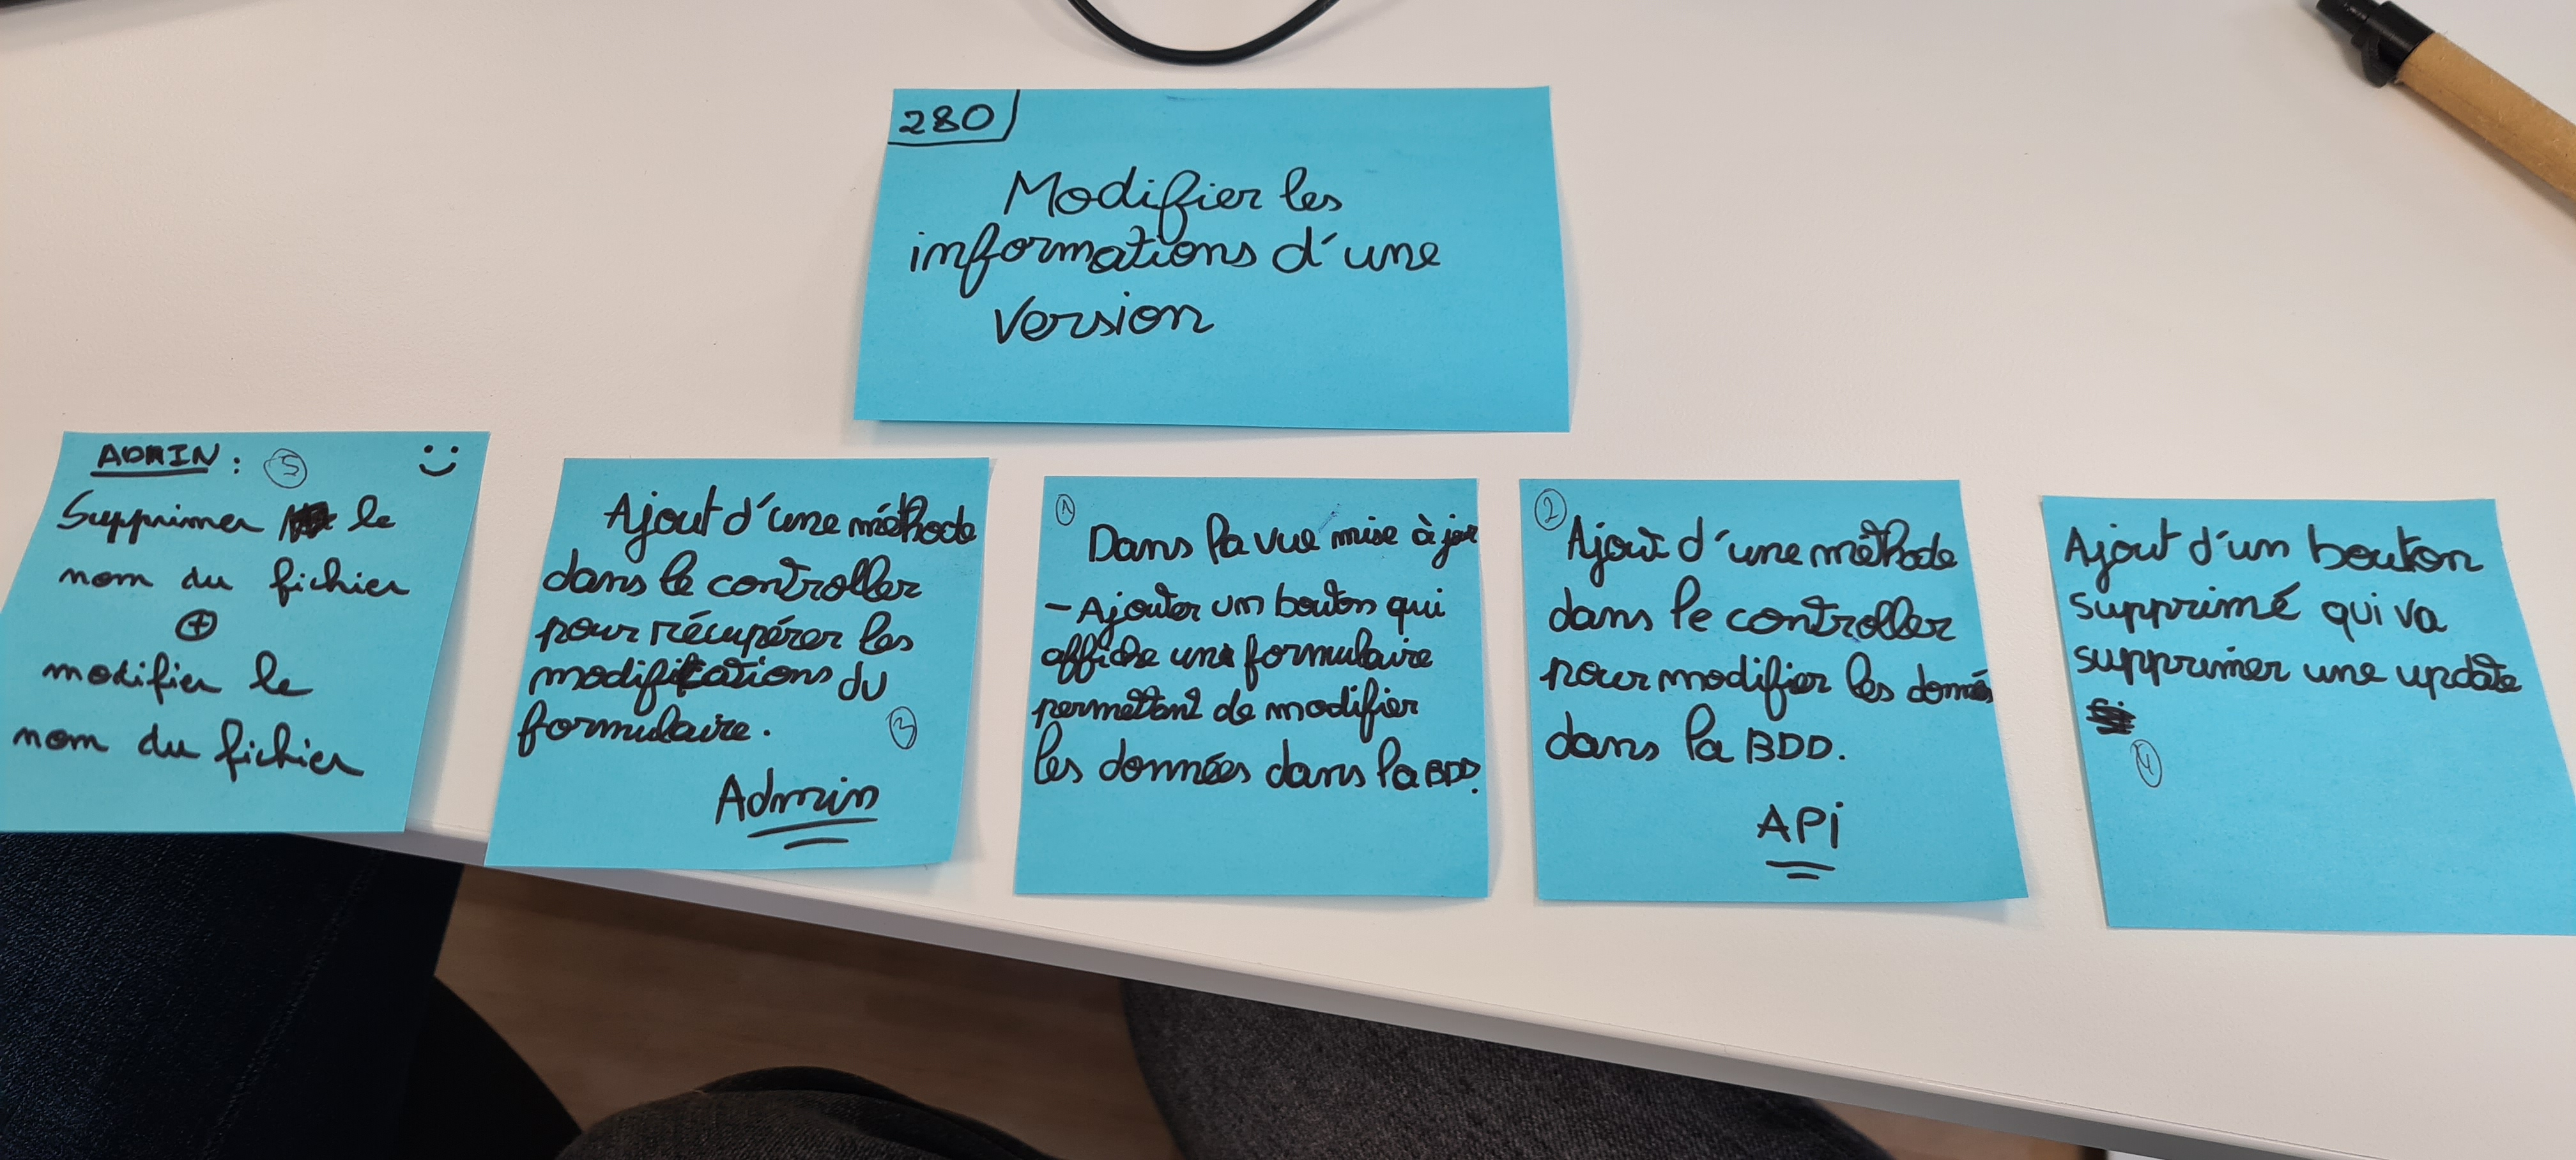 280
Modifier les
informations d'une
version
ADMIN : 5
Supprimer le
nom du fichier
+
modifier le
nom du fichier
Ajout d'une méthode
dans le controller
pour récupérer les
modifications du
formulaire.
3
Admin
1
Dans la vue mise à jour
- Ajouter un bouton qui
affiche un formulaire
permettant de modifier
les données dans la BDD.
2
Ajout d'une méthode
dans le controller
pour modifier les données
dans la BDD.
APi
Ajout d'un bouton
supprimé qui va
supprimer une update
4